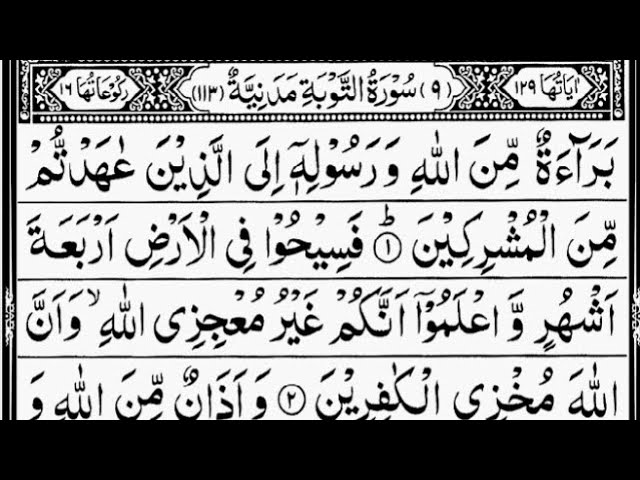 اٰيَاتُهَا ١٢٩ (٩) سُوْرَةُ التَّوْبَةِ مَدَنِيَّةٌ (١١٣) رُكُوْعَاتُهَا ١٦
بَرَآءَةٌ مِّنَ اللّٰهِ وَرَسُوْلِهٖٓ اِلَى الَّذِيْنَ عٰهَدْتُّمْ
مِّنَ الْمُشْرِكِيْنَ ؕ﴿١﴾ فَسِيْحُوْا فِى الْاَرْضِ اَرْبَعَةَ
اَشْهُرٍ وَّ اعْلَمُوْۤا اَنَّكُمْ غَيْرُ مُعْجِزِى اللّٰهِ ۙ وَاَنَّ
اللّٰهَ مُخْزِى الْكٰفِرِيْنَ ﴿٢﴾ وَ اَذَانٌ مِّنَ اللّٰهِ وَ